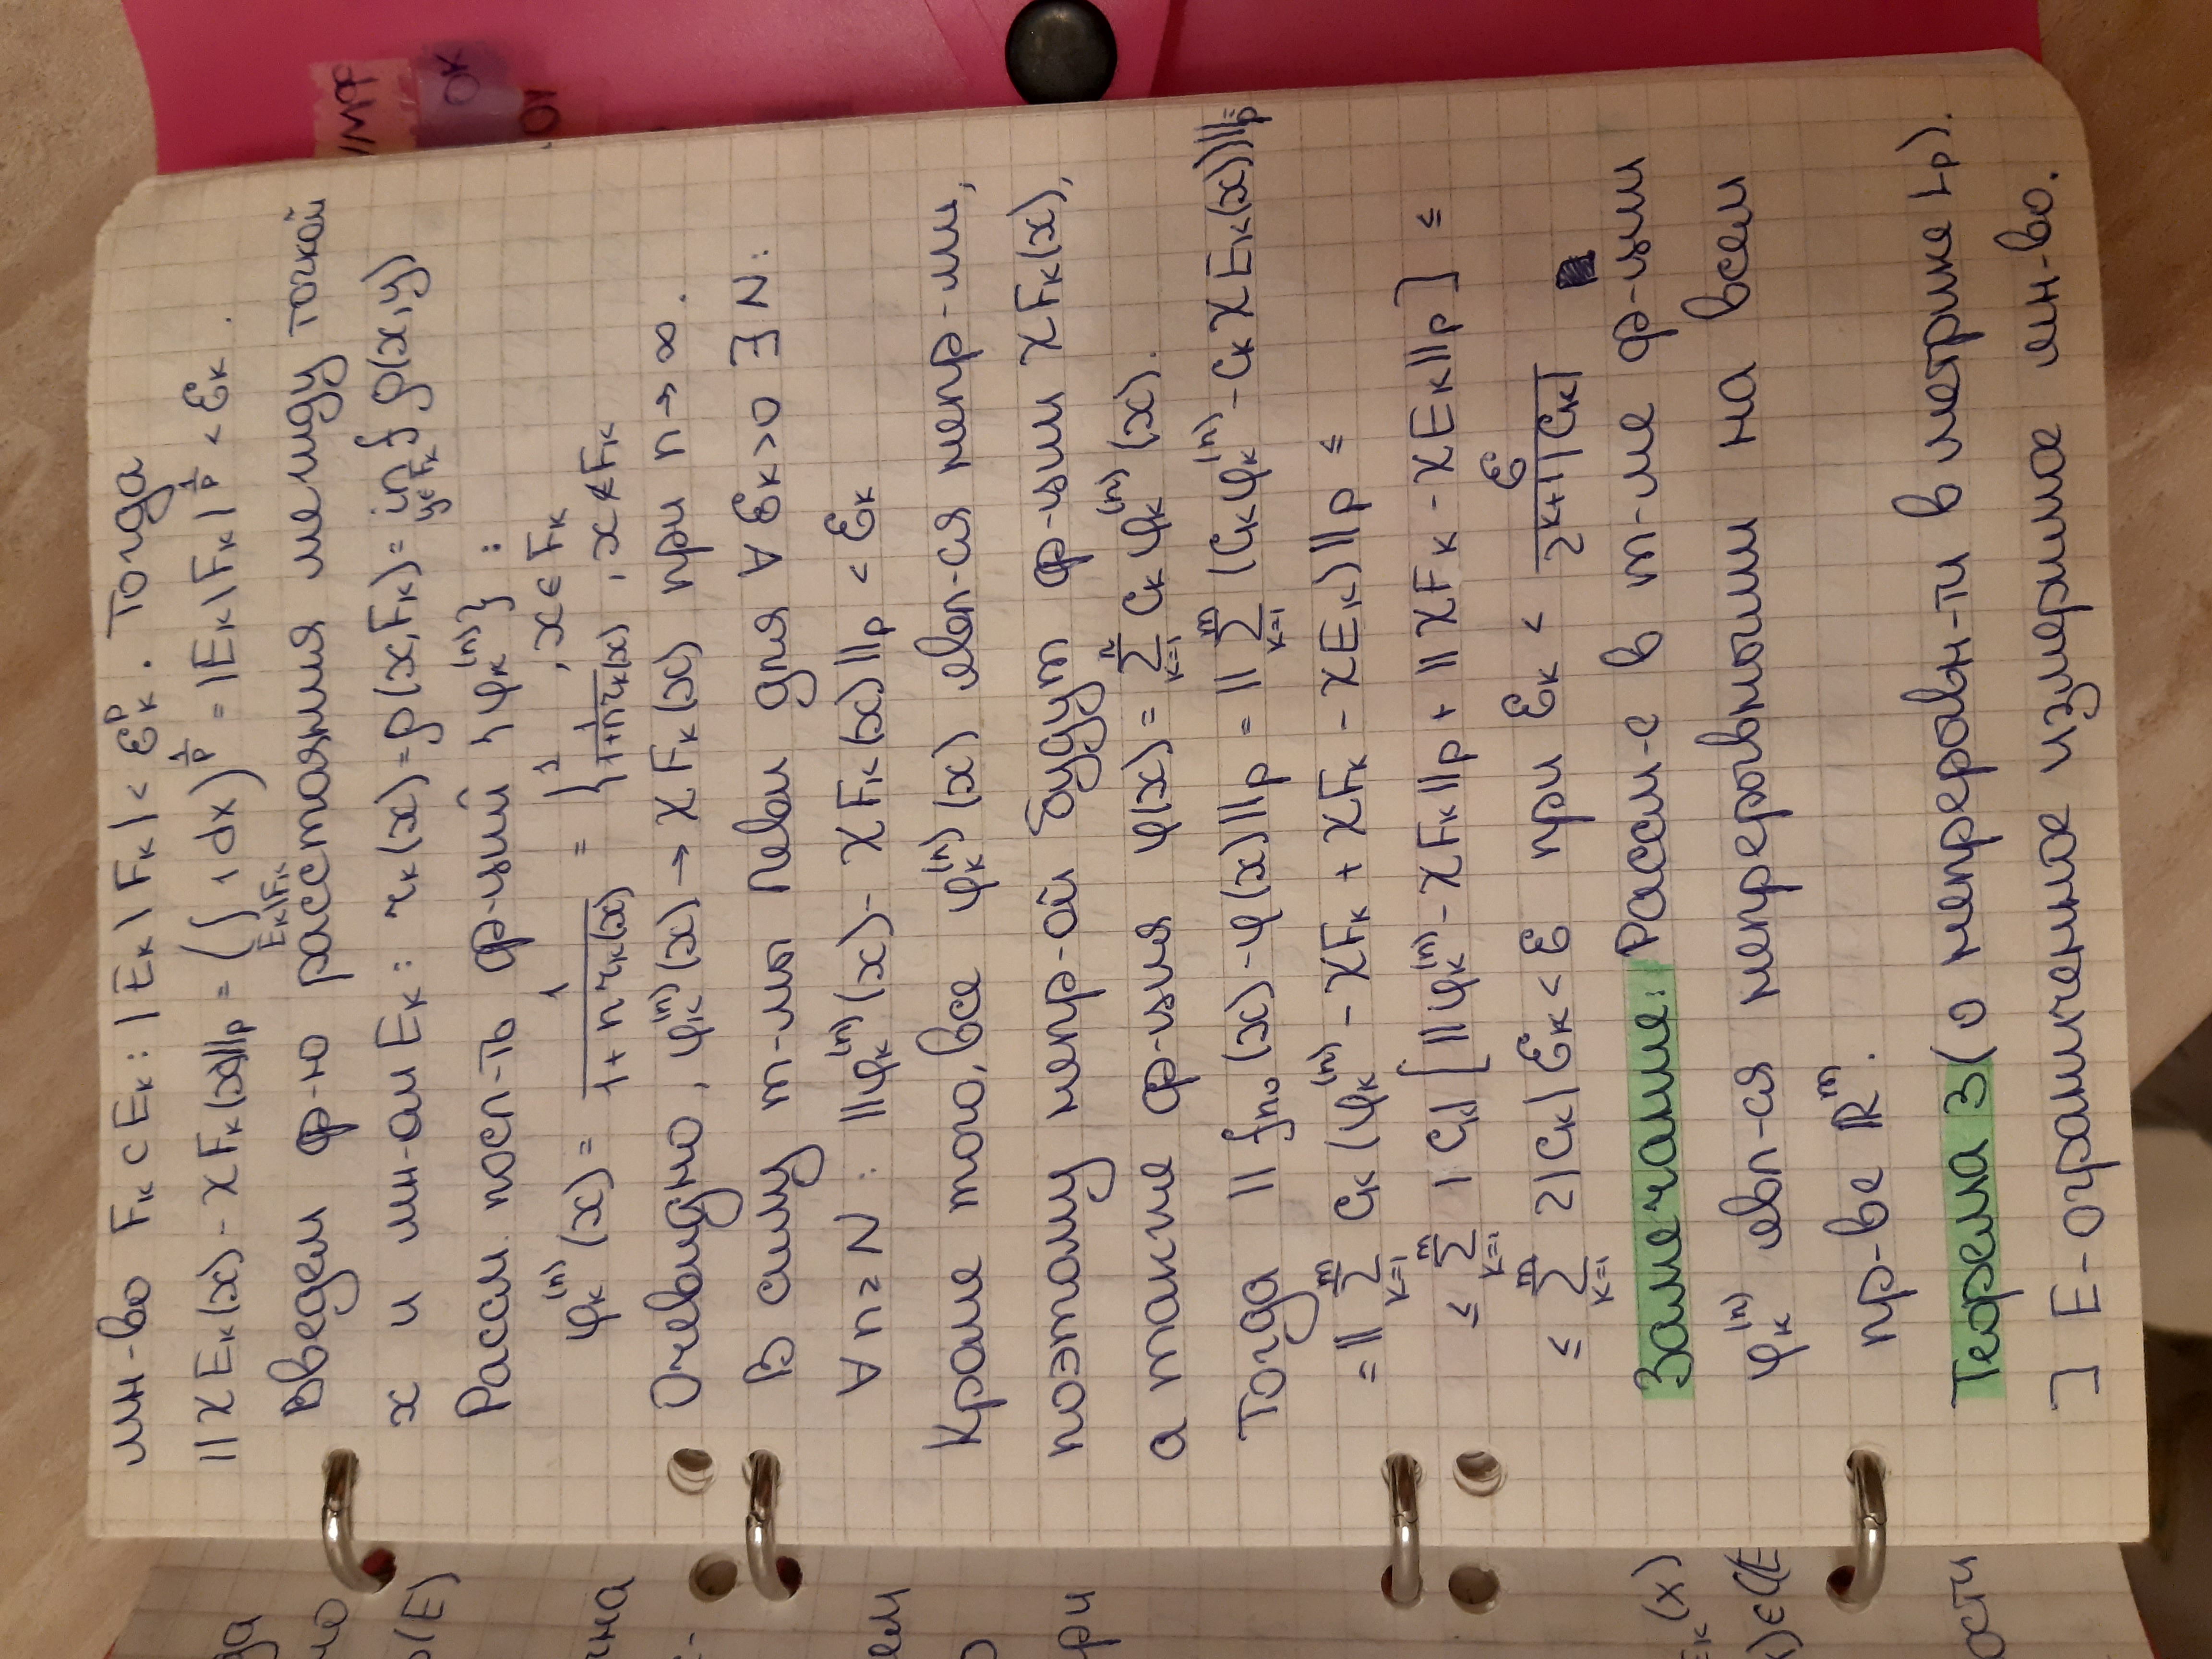 мн-во Fₖ ⊂ Eₖ: |Eₖ \ Fₖ| < Ɛₖᵖ. Тогда
||χEₖ(x) - χFₖ(x)||ₚ = (∫_{Eₖ\Fₖ} 1 dx)^{1/p} = |Eₖ \ Fₖ|^{1/p} < Ɛₖ.
Введем ф-ю расстояния между точкой
x и мн-ом Eₖ: rₖ(x) = ρ(x, Fₖ) = inf_{y∈Fₖ} ρ(x,y)
Рассм. посл-ть ф-ций {φₖ⁽ⁿ⁾}:
φₖ⁽ⁿ⁾(x) = 1/(1 + n rₖ(x)) = { 1, x ∈ Fₖ
1/(1+n rₖ(x)), x ∉ Fₖ
Очевидно, φₖ⁽ⁿ⁾(x) → χFₖ(x) при n → ∞.
В силу т-мы Леви для ∀ Ɛₖ > 0 ∃ N:
∀ n ≥ N: ||φₖ⁽ⁿ⁾(x) - χFₖ(x)||ₚ < Ɛₖ
Кроме того, все φₖ⁽ⁿ⁾(x) явл-ся непр-ми,
поэтому непр-ой будут ф-ции χFₖ(x),
а также ф-ция φ(x) = ∑_{k=1}^{n} Cₖ φₖ⁽ⁿ⁾(x).
Тогда ||fₙ₀(x) - φ(x)||ₚ = ||∑_{k=1}^{m} (Cₖφₖ⁽ⁿ⁾ - Cₖ χEₖ(x))||ₚ =
= ||∑_{k=1}^{m} Cₖ(φₖ⁽ⁿ⁾ - χFₖ + χFₖ - χEₖ)||ₚ ≤
≤ ∑_{k=1}^{m} |Cₖ| [||φₖ⁽ⁿ⁾ - χFₖ||ₚ + ||χFₖ - χEₖ||ₚ] ≤
≤ ∑_{k=1}^{m} 2|Cₖ| Ɛₖ < Ɛ при Ɛₖ < Ɛ/(2^{k+1}|Cₖ|) ■
Замечание: Рассм-е в т-ме ф-ции
φₖ⁽ⁿ⁾ явл-ся непрерывными на всем
пр-ве ℝᵐ.
Теорема 3 (о непрерывн-ти в метрике Lₚ).
] E - ограниченное измеримое мн-во.